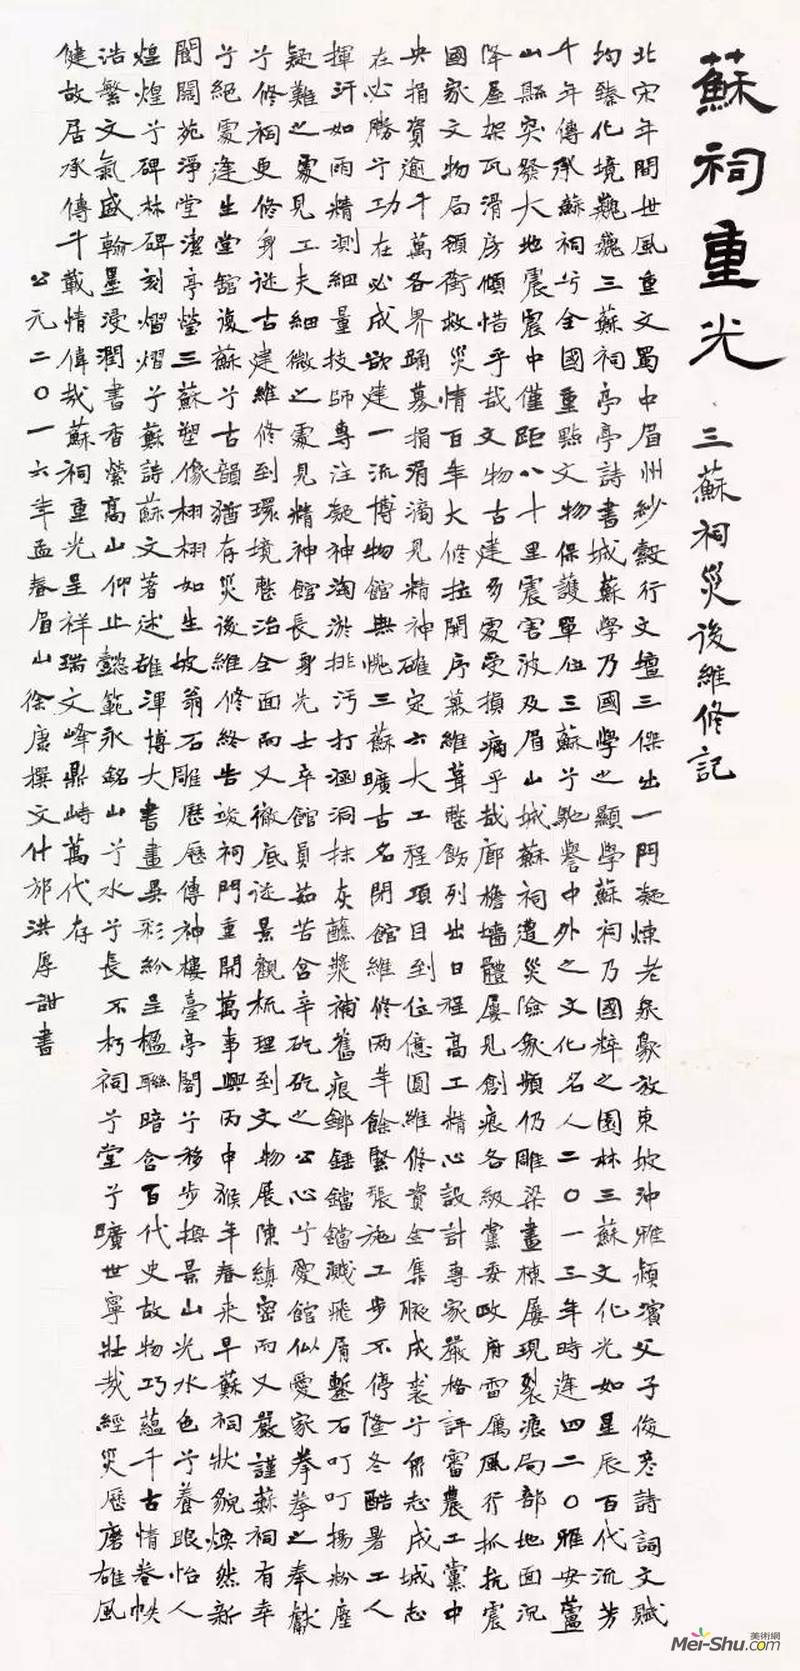 蘇祠重光
三蘇祠災後維修記
北宋年間世風重文蜀中眉州紗縠行文壇三傑出一門凝煉老泉豪放東坡沖雅潁濱父子俊彥詩詞文賦
均臻化境巍巍三蘇祠亭亭詩書城蘇學乃國學之顯學蘇祠乃國粹之園林三蘇文化光如星辰百代流芳
千年傳承蘇祠兮全國重點文物保護單位三蘇兮馳譽中外之文化名人二〇一三年時逢四二〇雅安蘆
山縣突發大地震震中僅距八十里震害波及眉山城蘇祠遭災險象頻仍雕梁畫棟屢現裂痕局部地面沉
降屋架瓦滑房傾惜乎哉文物古建多處受損痛乎哉廊檐墻體屢見創痕各級黨委政府雷厲風行抓抗震
國家文物局領銜救災情百年大修拉開序幕維葺整飭列出日程高工精心設計專家嚴格評審農工黨中
央捐資逾千萬各界踴募捐涓滴見精神確定六大工程項目到位億圓維修資金集腋成裘兮眾志成城志
在必勝兮功在必成欲建一流博物館無愧三蘇曠古名閉館維修兩年餘緊張施工步不停隆冬酷暑工人
揮汗如雨精測細量技師專注凝神淘淤排污打涵洞抹灰蘸漿補舊痕鎯錘鐺鐺濺飛屑鏨石叮叮揚粉塵
疑難之處見工夫細微之處見精神館長身先士卒館員茹苦含辛矻矻之公心兮愛館似愛家拳拳之奉獻
兮修祠更修身從古建維修到環境整治全面而又徹底從景觀梳理到文物展陳縝密而又嚴謹蘇祠有幸
兮絕處逢生堂館復蘇兮古韻猶存災後維修終告竣祠門重開萬事興丙申猴年春來早蘇祠狀貌煥然新
閬闊苑淨堂潔亭瑩三蘇塑像栩栩如生坡翁石雕歷歷傳神樓臺亭閣兮移步換景山光水色兮養眼怡人
煌煌兮碑林碑刻熠熠兮蘇詩蘇文著述雄渾博大書畫異彩紛呈楹聯暗含百代史故物巧蘊千古情卷帙
浩繁文氣盛翰墨浸潤書香縈高山仰止懿範永銘山兮水兮長不朽祠兮堂兮曠世寧壯哉經災歷磨雄風
健故居承傳千載情偉哉蘇祠重光呈祥瑞文峰鼎峙萬代存
公元二〇一六年孟春眉山徐康撰文什邡洪厚甜書
美術網
Mei-Shu.com